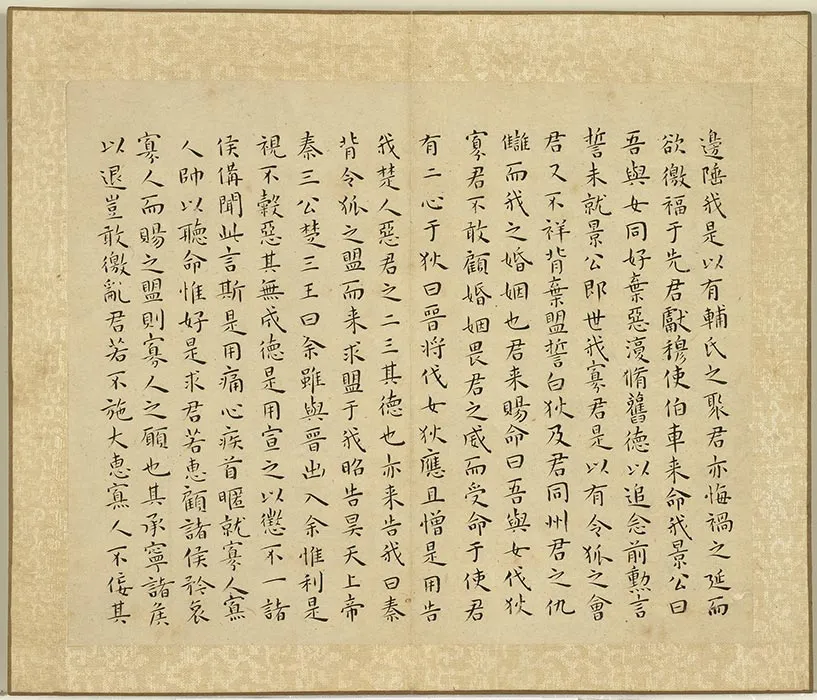 邊陲我是以有輔氏之聚君亦悔禍之延而
欲徼福于先君獻穆使伯車来命我景公曰
吾與女同好棄惡澓脩舊德以追念前勲言
誓未就景公即世我寡君是以有令狐之會
君又不祥背棄盟誓白狄及君同州君之仇
讎而我之婚姻也君来賜命曰吾與女伐狄
寡君不敢顧婚姻畏君之威而受命于使君
有二心于狄曰晉將伐女狄應且憎是用告
我楚人惡君之二三其德也亦来告我曰秦
背令狐之盟而来求盟于我昭告昊天上帝
秦三公楚三王曰余雖與晉出入余惟利是
視不穀惡其無成德是用宣之以懲不一諸
侯僃聞此言斯是用痛心疾首暱就寡人寡
人帥以聽命惟好是求君若惠顧諸侯矜哀
寡人而賜之盟則寡人之願也其承寧諸侯
以退豈敢徼亂君若不施大惠寡人不佞其